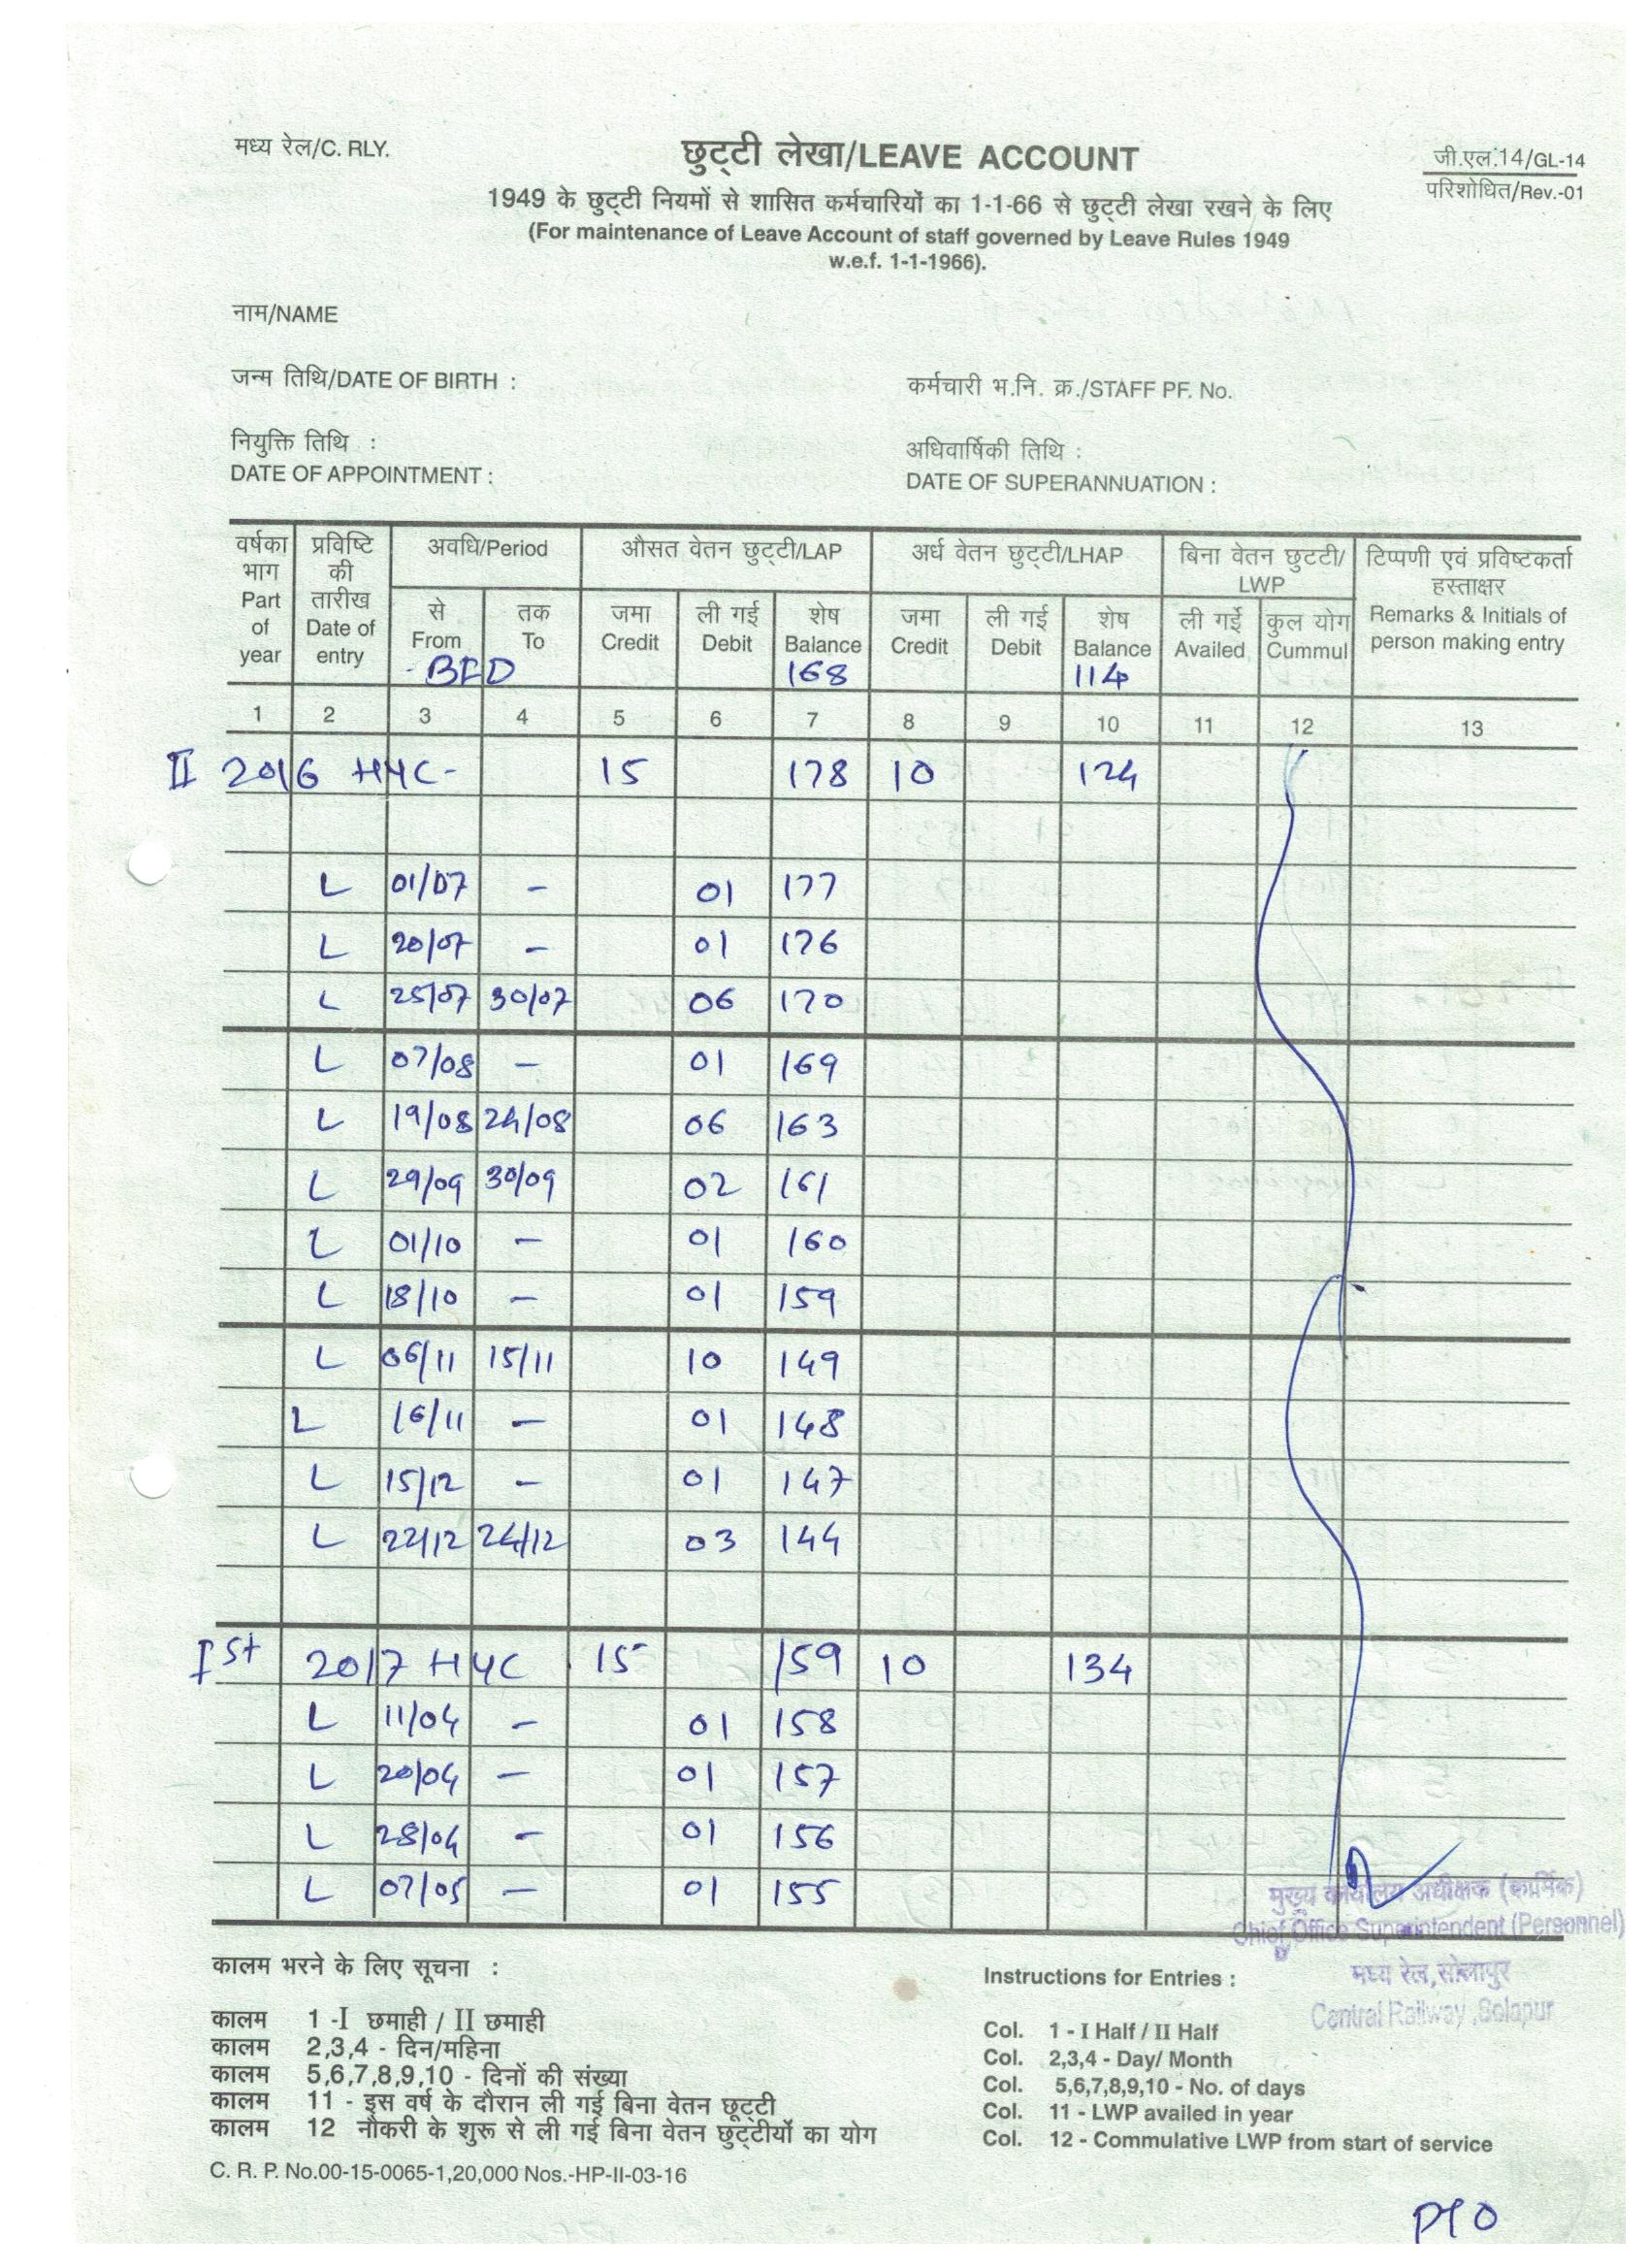 मध्य रेल/C. RLY.
छुट्टी लेखा/LEAVE ACCOUNT
जी.एल.14/GL-14
परिशोधित/Rev.-01
1949 के छुट्टी नियमों से शासित कर्मचारियों का 1-1-66 से छुट्टी लेखा रखने के लिए
(For maintenance of Leave Account of staff governed by Leave Rules 1949
w.e.f. 1-1-1966).
नाम/NAME
जन्म तिथि/DATE OF BIRTH :
कर्मचारी भ.नि. क्र./STAFF PF. No.
नियुक्ति तिथि :
DATE OF APPOINTMENT :
अधिवार्षिकी तिथि :
DATE OF SUPERANNUATION :
वर्षका भाग Part of year | प्रविष्टि की तारीख Date of entry | अवधि/Period | औसत वेतन छुट्टी/LAP | अर्ध वेतन छुट्टी/LHAP | बिना वेतन छुटटी/ LWP | टिप्पणी एवं प्रविष्टकर्ता हस्ताक्षर Remarks & Initials of person making entry
से From | तक To | जमा Credit | ली गई Debit | शेष Balance | जमा Credit | ली गई Debit | शेष Balance | ली गई Availed | कुल योग Cummul
168 114
1 2 3 4 5 6 7 8 9 10 11 12 13
II 2016 HYC- 15 178 10 124
L 01/07 - 01 177
L 20/07 - 01 176
L 25/07 30/07 06 170
L 07/08 - 01 169
L 19/08 24/08 06 163
L 29/09 30/09 02 161
L 01/10 - 01 160
L 18/10 - 01 159
L 06/11 15/11 10 149
L 16/11 - 01 148
L 15/12 - 01 147
L 22/12 24/12 03 144
Ist 2017 HYC 15 159 10 134
L 11/04 - 01 158
L 20/04 - 01 157
L 28/04 - 01 156
L 07/05 - 01 155
मुख्य कार्यालय अधीक्षक (कार्मिक)
Chief Office Superintendent (Personnel)
मध्य रेल,सोलापुर
Central Railway ,Solapur
कालम भरने के लिए सूचना :
कालम 1 -I छमाही / II छमाही
कालम 2,3,4 - दिन/महिना
कालम 5,6,7,8,9,10 - दिनों की संख्या
कालम 11 - इस वर्ष के दौरान ली गई बिना वेतन छूट्टी
कालम 12 नौकरी के शुरू से ली गई बिना वेतन छुट्टीयों का योग
Instructions for Entries :
Col. 1 - I Half / II Half
Col. 2,3,4 - Day/ Month
Col. 5,6,7,8,9,10 - No. of days
Col. 11 - LWP availed in year
Col. 12 - Commulative LWP from start of service
C. R. P. No.00-15-0065-1,20,000 Nos.-HP-II-03-16
PTO